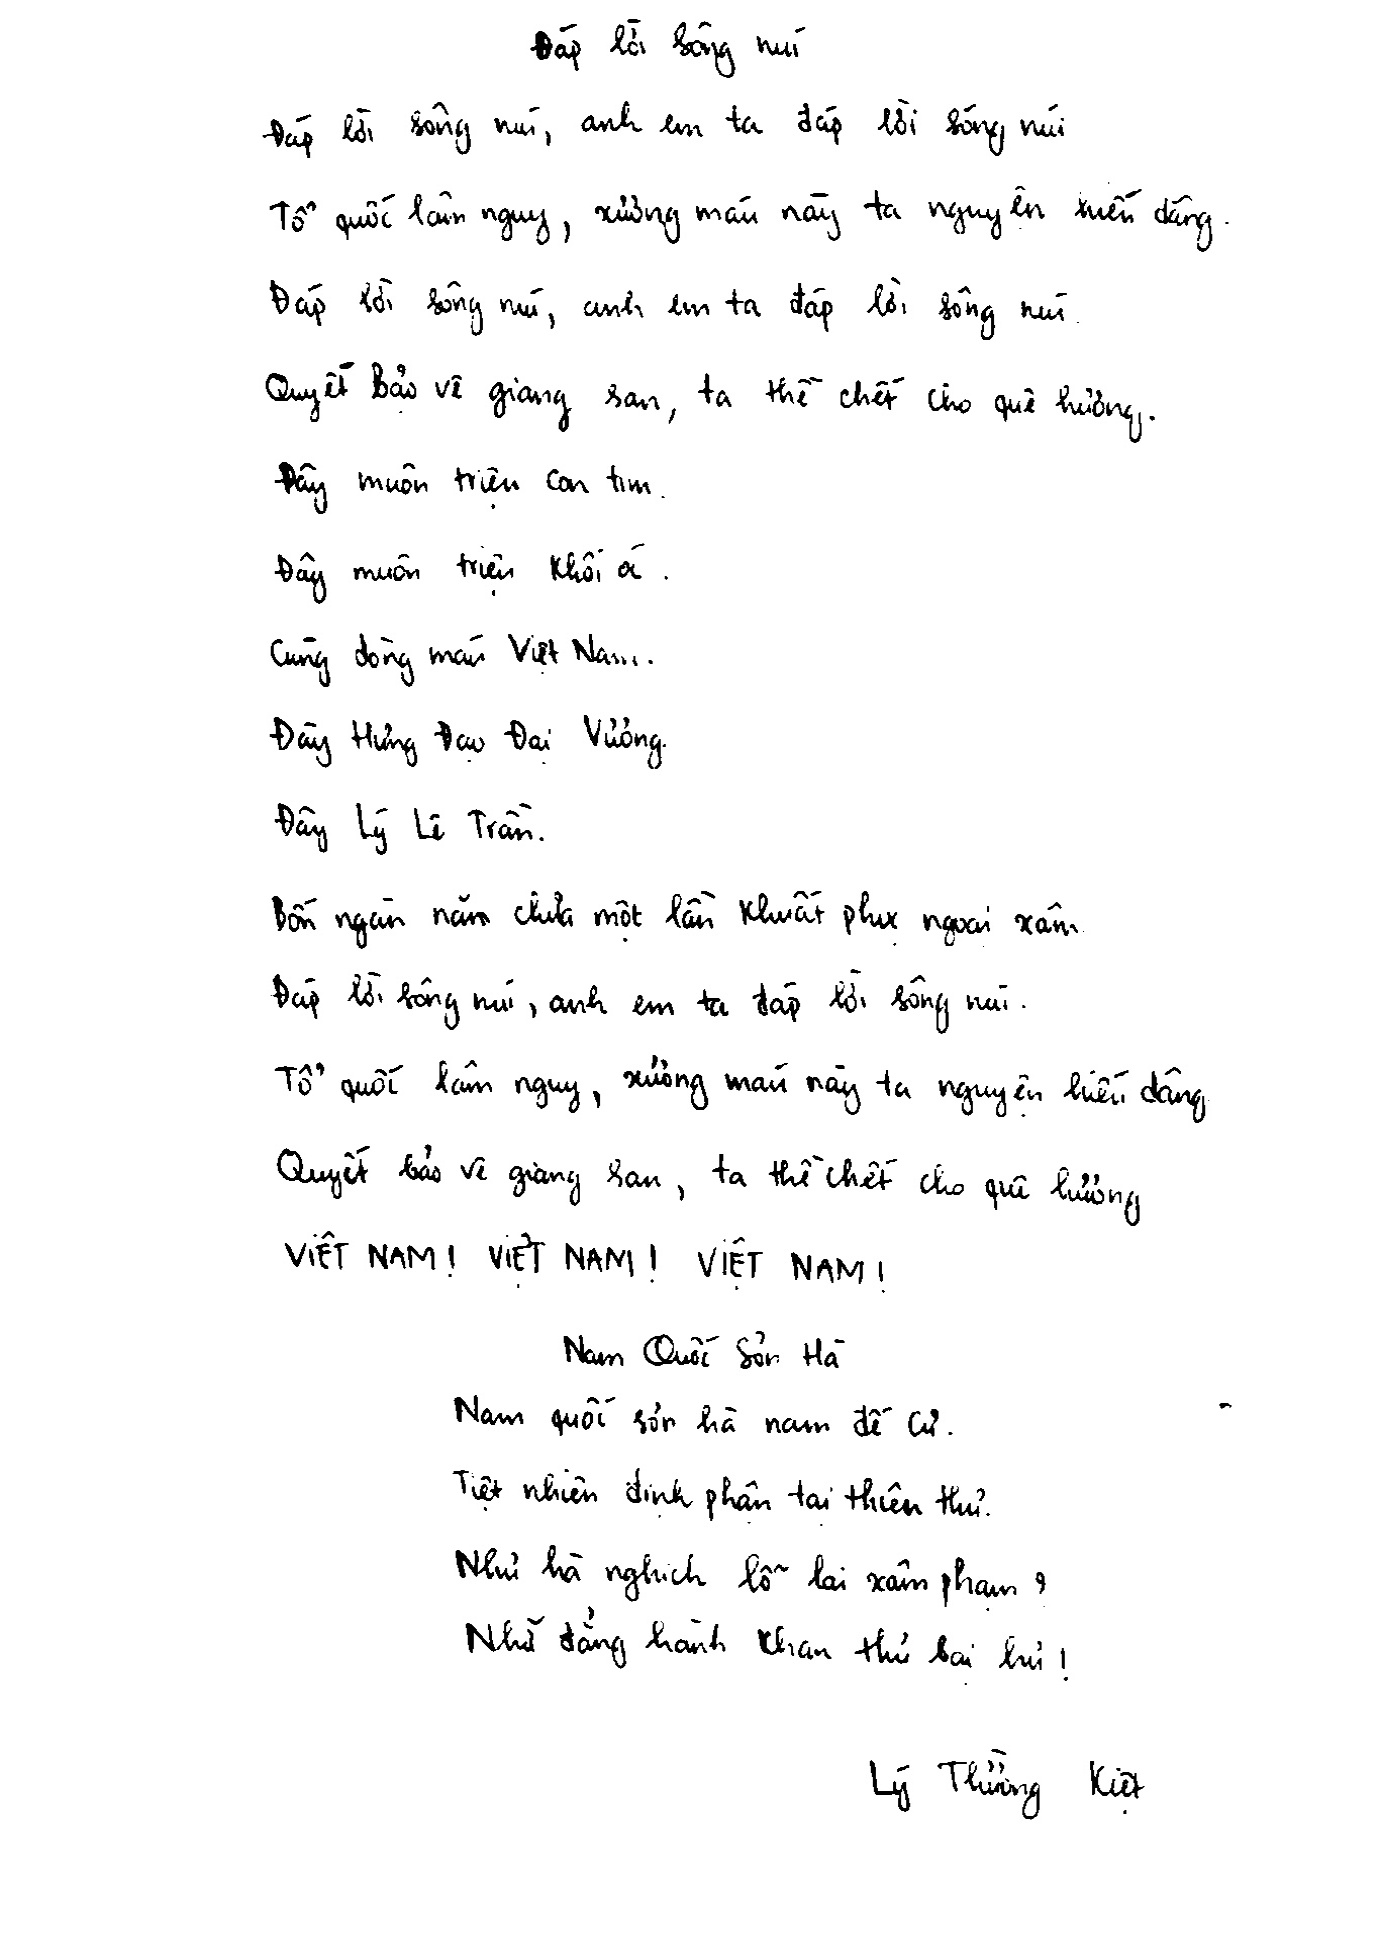 Đáp lời sông núi
Đáp lời sông núi, anh em ta đáp lời sông núi
Tổ quốc lâm nguy, xương máu này ta nguyện hiến dâng.
Đáp lời sông núi, anh em ta đáp lời sông núi.
Quyết bảo vệ giang san, ta thề chết cho quê hương.
Đây muôn triệu con tim.
Đây muôn triệu khối óc.
Cùng dòng máu Việt Nam.
Đây Hưng Đạo Đại Vương.
Đây Lý Lê Trần.
Bốn ngàn năm chưa một lần khuất phục ngoại xâm
Đáp lời sông núi, anh em ta đáp lời sông núi.
Tổ quốc lâm nguy, xương máu này ta nguyện hiến dâng
Quyết bảo vệ giang san, ta thề chết cho quê hương
VIỆT NAM! VIỆT NAM! VIỆT NAM!
Nam Quốc Sơn Hà
Nam quốc sơn hà nam đế cư.
Tiệt nhiên định phận tại thiên thư.
Như hà nghịch lỗ lai xâm phạm?
Nhữ đẳng hành khan thủ bại hư!
Lý Thường Kiệt